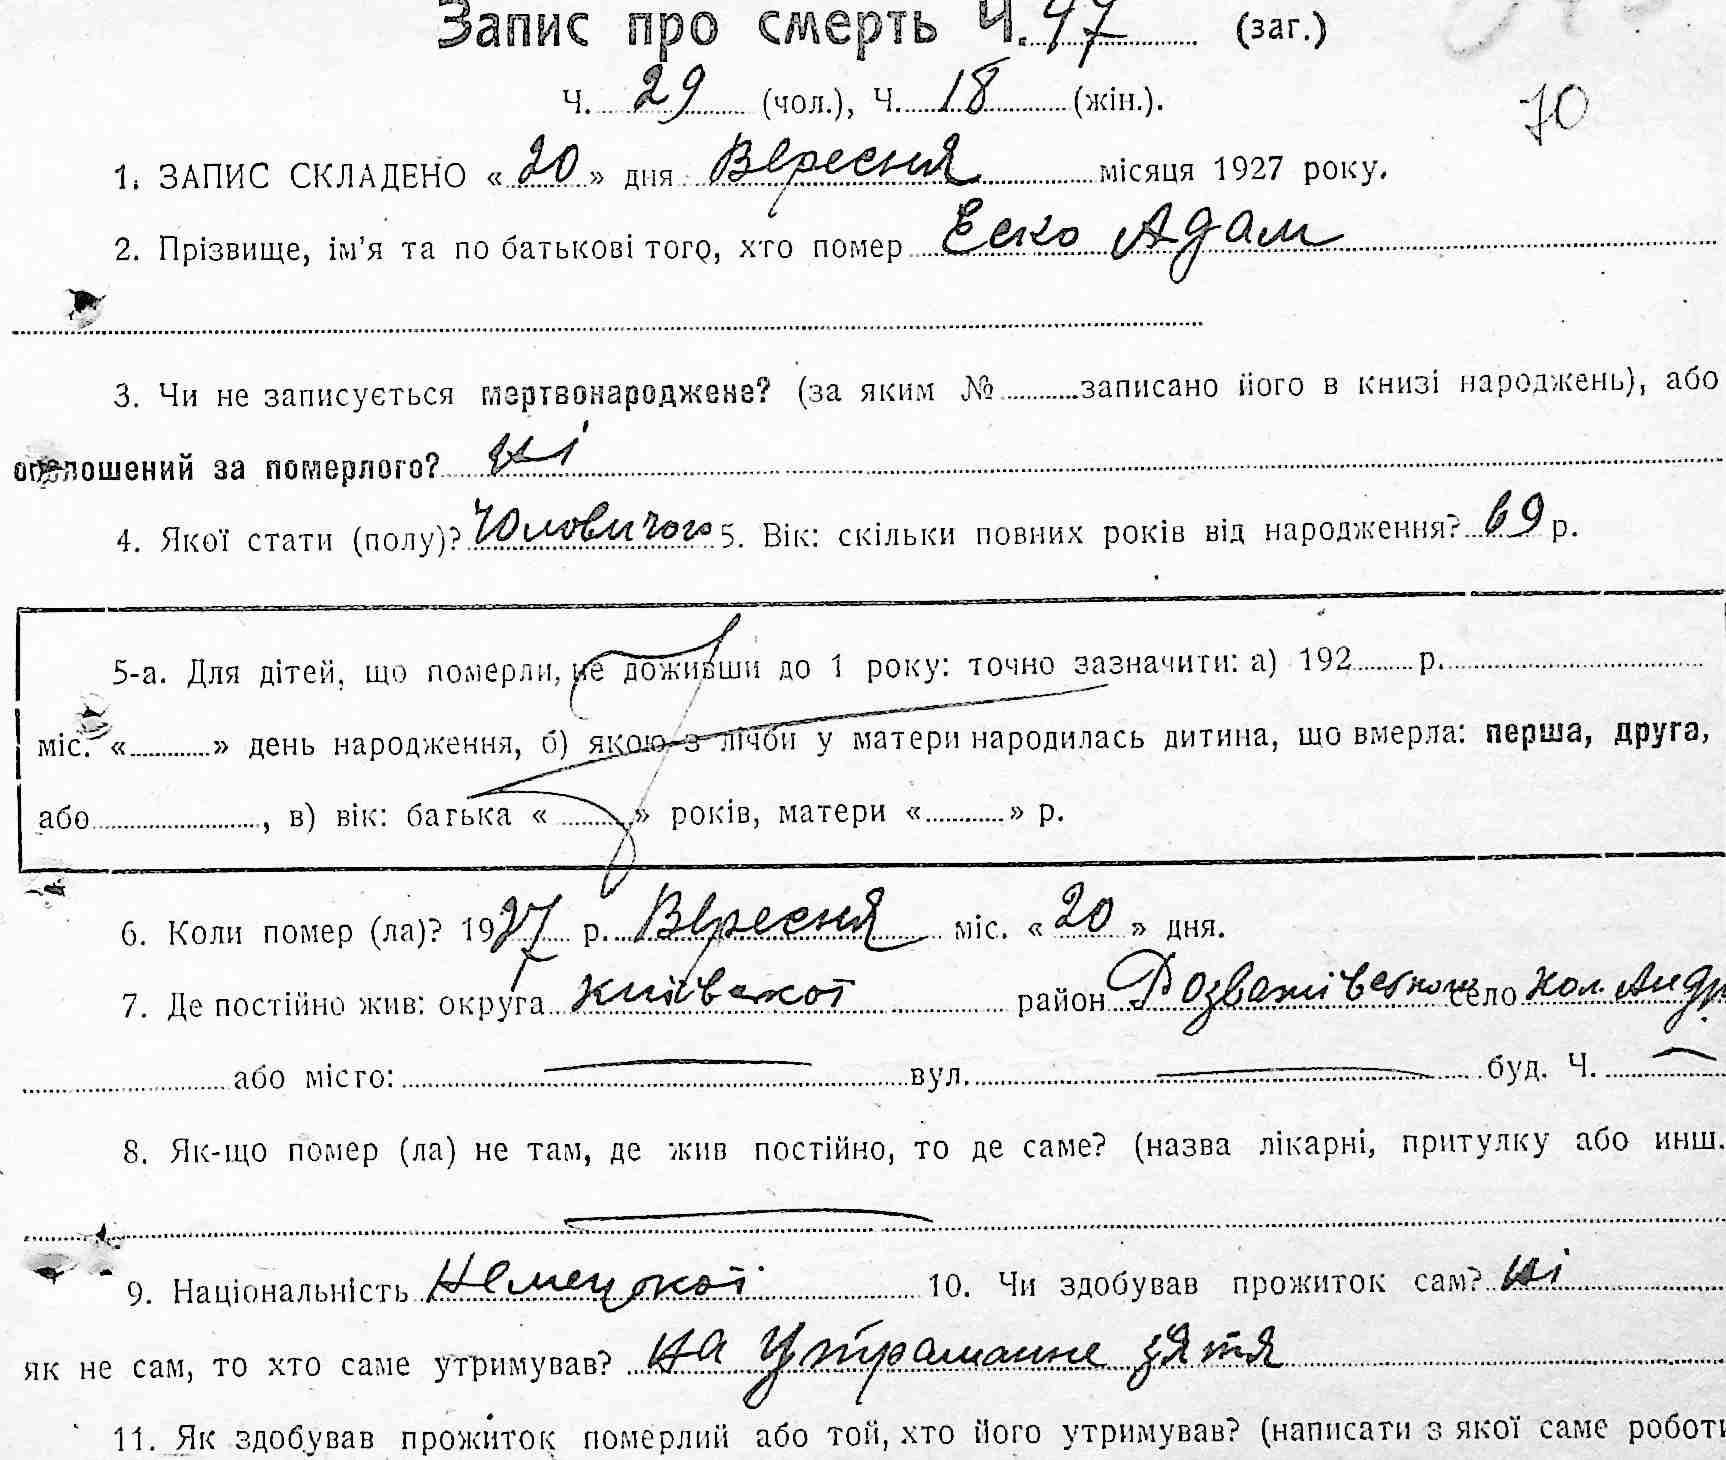 Запис про смерть Ч. 47 (заг.)
Ч. 29 (чол.), Ч. 18 (жін.).
70
1. ЗАПИС СКЛАДЕНО « 20 » дня Вересня місяця 1927 року.
2. Прізвище, ім'я та по батькові того, хто помер Еско Адам
3. Чи не записується мертвонароджене? (за яким № записано його в книзі народжень), або
оголошений за померлого? ні
4. Якої стати (полу)? Чоловичого 5. Вік: скільки повних років від народження? 69 р.
5-а. Для дітей, що померли, не доживши до 1 року: точно зазначити: а) 192 р.
міс. « » день народження, б) якою з лічби у матери народилась дитина, що вмерла: перша, друга,
або , в) вік: батька « » років, матери « » р.
6. Коли помер (ла)? 1927 р. Вересня міс. « 20 » дня.
7. Де постійно жив: округа Київської район Розважівського село Кол. Андр
або місто: вул. буд. Ч.
8. Як-що помер (ла) не там, де жив постійно, то де саме? (назва лікарні, притулку або инш.
9. Національність Немецкої 10. Чи здобував прожиток сам? ні
як не сам, то хто саме утримував? на утрамание зятя
11. Як здобував прожиток померлий або той, хто його утримував? (написати з якої саме роботи